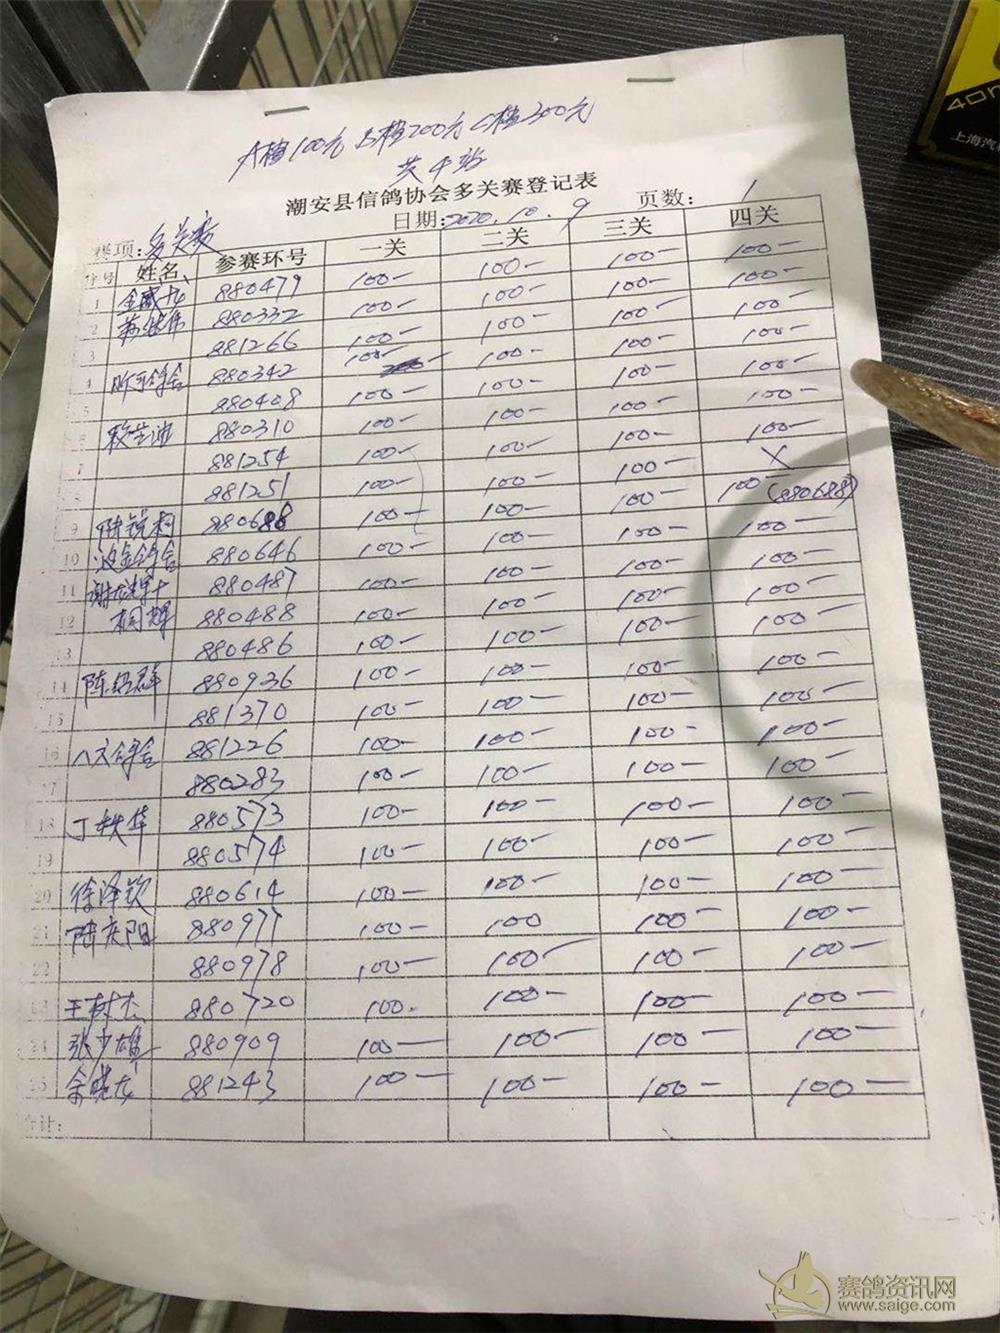 A档100元 B档200元 C档300元
共4站
潮安县信鸽协会多关赛登记表
赛项:多关赛 日期:2020.10.9 页数: 1
序号 姓名 参赛环号 一关 二关 三关 四关
1 880479 100- 100- 100- 100-
2 880332 100- 100- 100- 100-
3 881266 100- 100- 100- 100-
4 鸽舍 880342 100- 100- 100- 100-
5 880408 100- 100- 100- 100-
6 880310 100- 100- 100- 100-
7 881254 100- 100- 100- X
8 881251 100- 100- 100- 100- (880688)
9 880688 100- 100- 100- 100-
10 鸽舍 880646 100- 100- 100- 100-
11 880487 100- 100- 100- 100-
12 880488 100- 100- 100- 100
13 880486 100- 100- 100- 100-
14 880936 100- 100- 100- 100-
15 881370 100- 100- 100- 100-
16 八六鸽舍 881226 100- 100- 100- 100-
17 880283 100- 100- 100- 100-
18 丁秋华 880573 100- 100- 100- 100-
19 880574 100- 100- 100- 100-
20 徐泽钦 880614 100- 100- 100- 100-
21 陆庆阳 880977 100- 100 100- 100-
22 880978 100- 100- 100- 100-
23 王树杰 880720 100- 100- 100- 100-
24 张少雄 880909 100- 100- 100- 100-
25 余晓龙 881243 100- 100- 100- 100-
合计:
40m
上海汽
赛鸽资讯网
www.saige.com